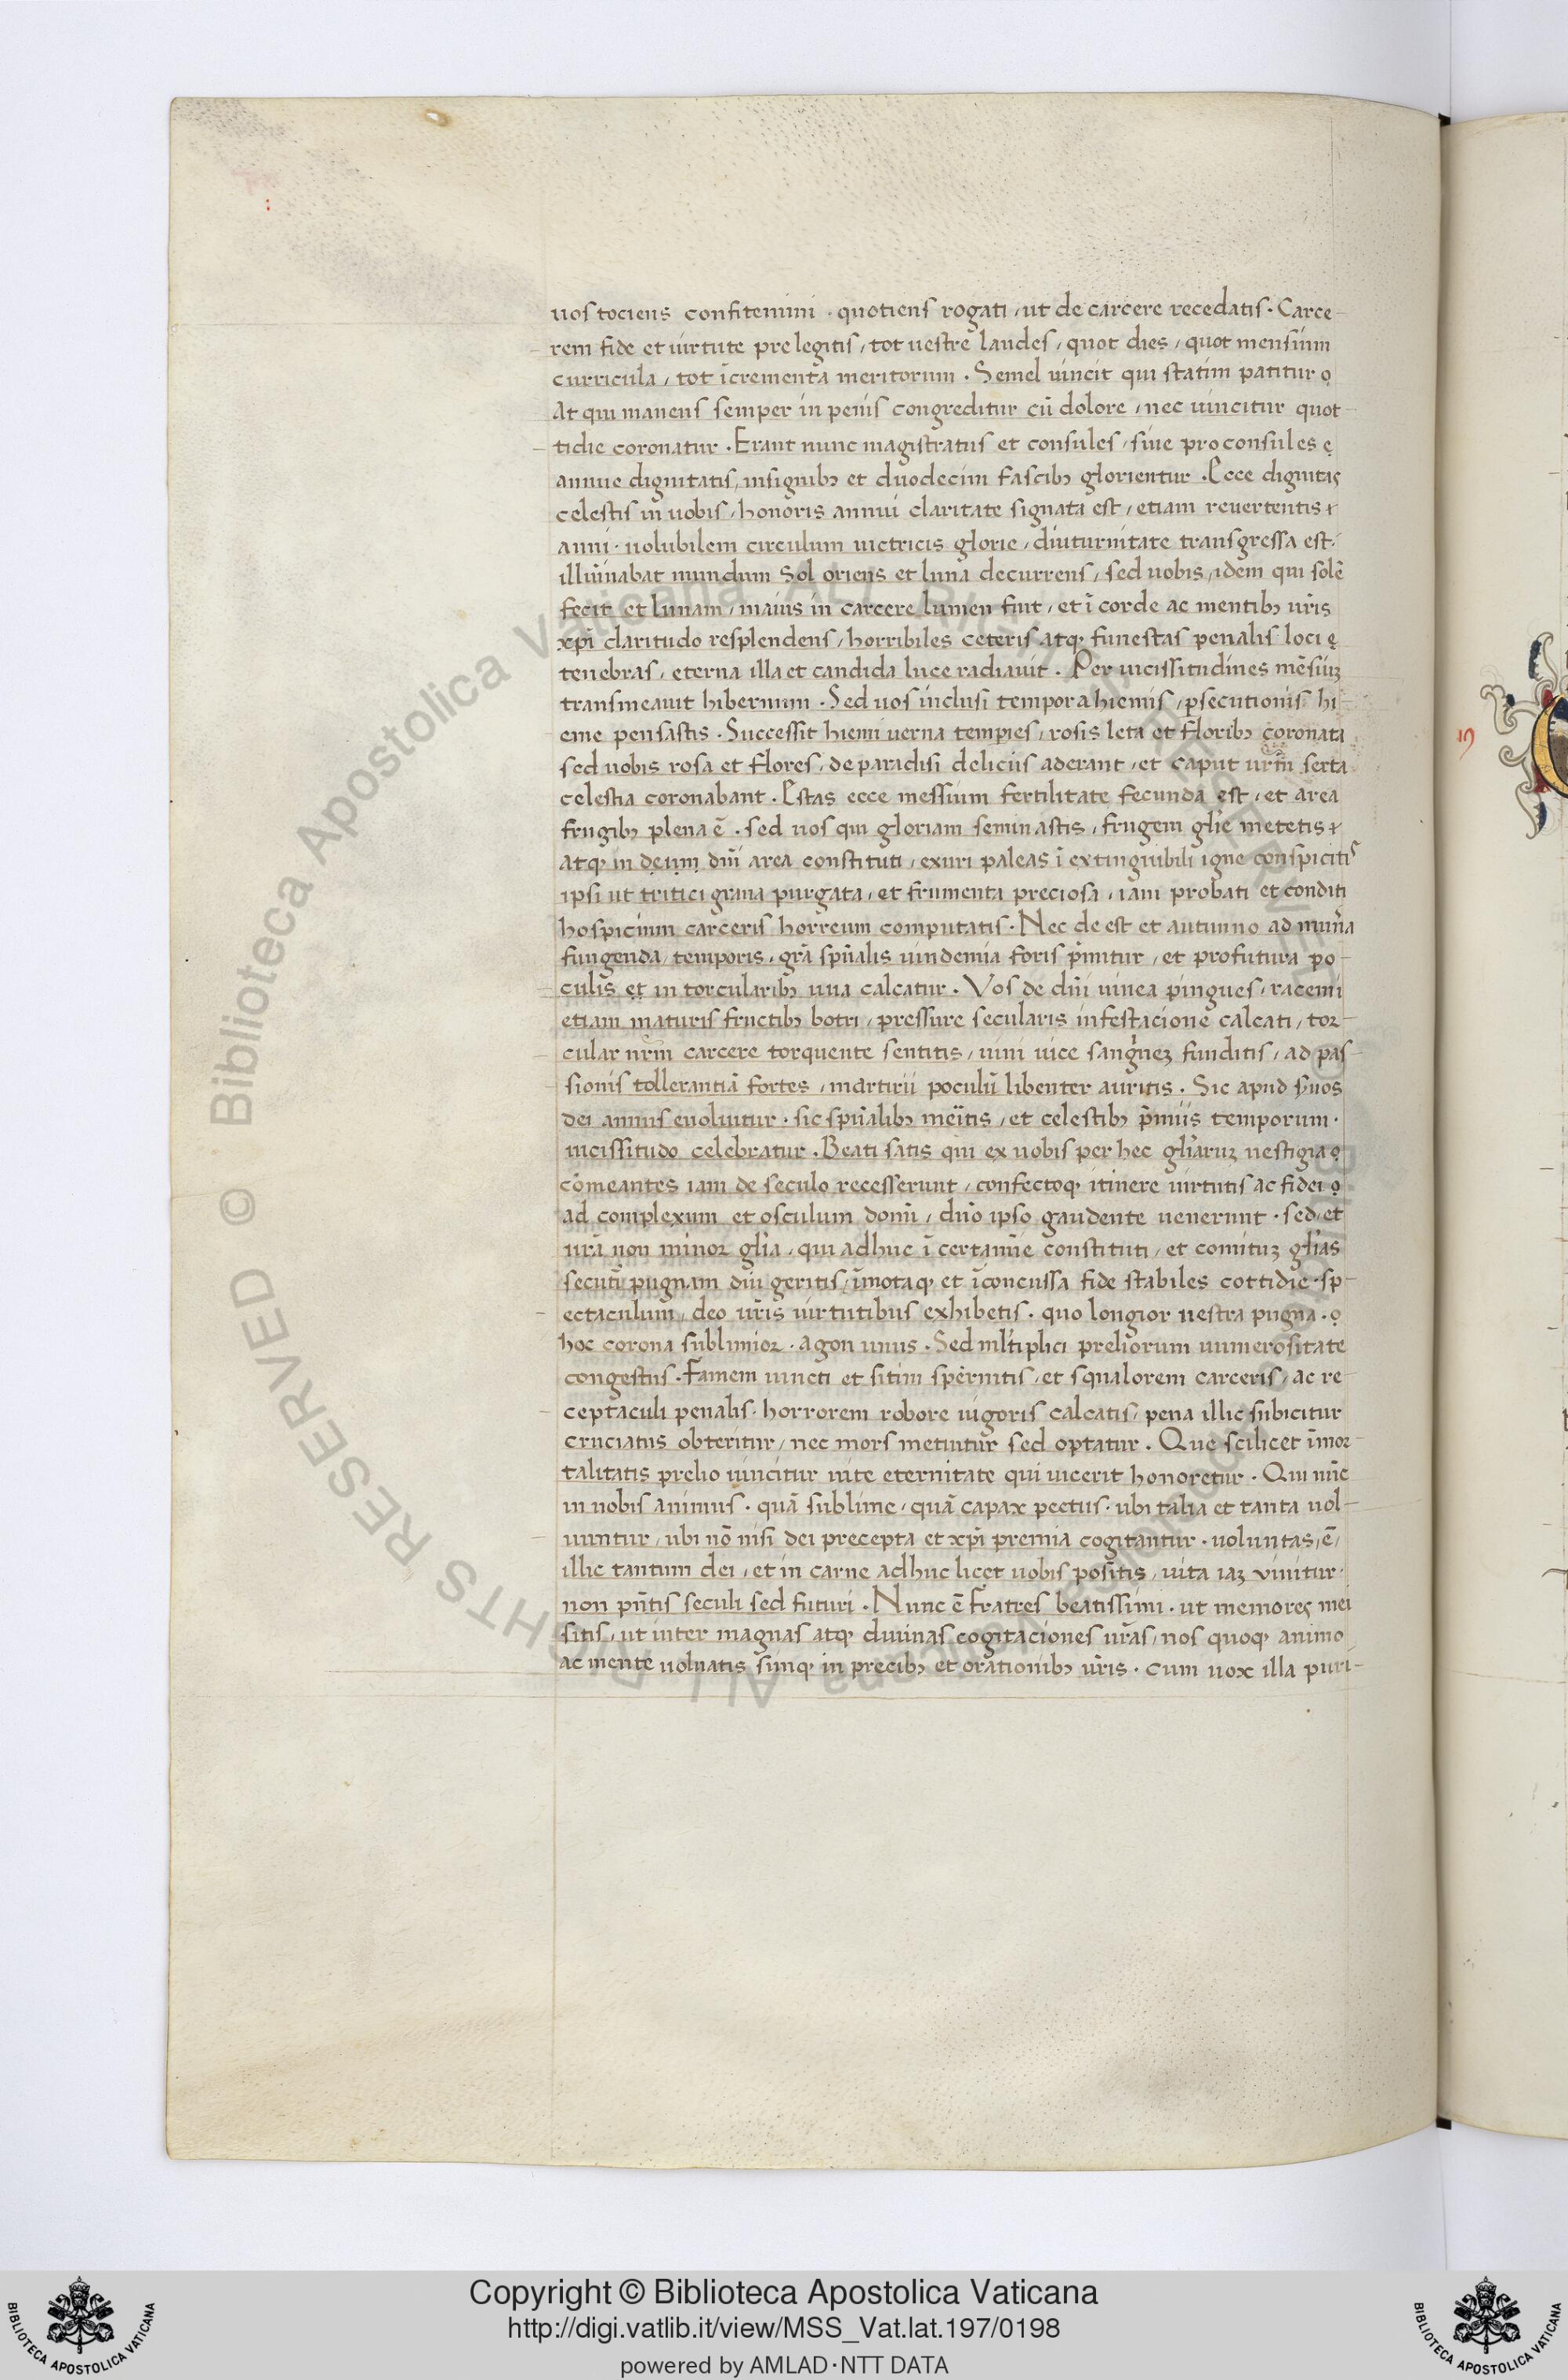 uos tociens confitemini · quotiens rogati / ut de carcere recedatis · Carce-
rem fide et uirtute prelegitis / tot uestre laudes / quot dies / quot mensium
curricula / tot īcrementa meritorum · Semel uincit qui statim patitur
At qui manens semper in penis congreditur cū dolore / nec uincitur quot-
tidie coronatur · Erant nunc magistratus et consules / siue proconsules
annue dignitatis / insignibꝫ et duodecim fascibꝫ glorientur · Ecce dignitas
celestis in uobis / honoris annui claritate signata est / etiam reuertentis
anni · uolubilem circulum uictricis glorie / diuturnitate transgressa est ·
illuminabat mundum Sol oriens et luna decurrens / sed uobis / idem qui solē
fecit et lunam / maius in carcere lumen fuit / et ī corde ac mentibꝫ ur̄is
xp̄i claritudo resplendens / horribiles ceteris atqꝫ funestas penalis loci
tenebras / eterna illa et candida luce radiauit · Per uicissitudines mēsiuꝫ
transmeauit hibernum · Sed uos inclusi tempora hiemis / ꝑsecutionis hi-
eme pensastis · Successit hiemi uerna tempies / rosis leta et floribꝫ coronata
sed uobis rosa et flores / de paradisi deliciis aderant / et caput ur̄m serta
celestia coronabant · Estas ecce messium fertilitate fecunda est / et area
frugibꝫ plena ē · sed uos qui gloriam seminastis / frugem gl̄ie metetis
atqꝫ in deum dn̄i area constituti / exuri paleas ī extinguibili igne conspicitis
ipsi ut tritici grana purgata / et frumenta preciosa / iam probati et conditi
hospicium carceris horreum computatis · Nec de est et autumno ad mun̄a
fungenda / temporis / gr̄a sp̄ualis uindemia foris p̄mitur / et profutura po-
culis et in torcularibꝫ uua calcatur · Vos de dn̄i uinea pingues / racemi
etiam maturis fructibꝫ botri / pressure secularis infestacione calcati / tor-
cular nr̄m carcere torquente sentitis / uini uice sangn̄eꝫ funditis / ad pas-
sionis tollerantiā fortes / martirii poculū libenter auritis · Sic apud suos
dei annus euoluitur · sic sp̄ualibꝫ mēitis / et celestibꝫ p̄miis temporum ·
uicissitudo celebratur · Beati satis qui ex uobis per hec gl̄iaruꝫ uestigia
cōmeantes iam de seculo recesserunt / confectoqꝫ itinere uirtutis ac fidei
ad complexum et osculum domī / dn̄o ipso gaudente uenerunt · sed et
ur̄a non minor gl̄ia / qui adhuc ī certamīe constituti / et comituꝫ gl̄ias
secuti pugnam diu geritis / īmotaqꝫ et īconcussa fide stabiles cottidie · sp-
ectaculum / deo ur̄is uirtutibus exhibetis · quo longior uestra pugna ·
hoc corona sublimior · agon unus · Sed ml̄tiplici preliorum numerositate
congestus · Famem uincti et sitim spernitis / et squalorem carceris / ac re-
ceptaculi penalis · horrorem robore uigoris calcatis / pena illic subicitur
cruciatus obteritur / nec mors metuitur sed optatur · Que scilicet īmor-
talitatis prelio uincitur uite eternitate qui uicerit honoretur · Qui nūc
in uobis animus · quā sublime / quā capax pectus · ubi talia et tanta uol-
uuntur / ubi nō nisi dei precepta et xp̄i premia cogitantur · uoluntas / ē /
illic tantum dei / et in carne adhuc licet uobis positis / uita iaꝫ viuitur ·
non pn̄tis seculi sed futuri · Nunc ē fratres beatissimi · ut memores mei
sitis / ut inter magnas atqꝫ diuinas cogitaciones ur̄as / nos quoqꝫ animo
ac mente uoluatis simqꝫ in precibꝫ et orationibꝫ ur̄is · cum uox illa puri-
19
© Biblioteca Apostolica Vaticana ALL RIGHTS RESERVED
Copyright © Biblioteca Apostolica Vaticana
http://digi.vatlib.it/view/MSS_Vat.lat.197/0198
powered by AMLAD·NTT DATA
BIBLIOTECA APOSTOLICA VATICANA
BIBLIOTECA APOSTOLICA VATICANA